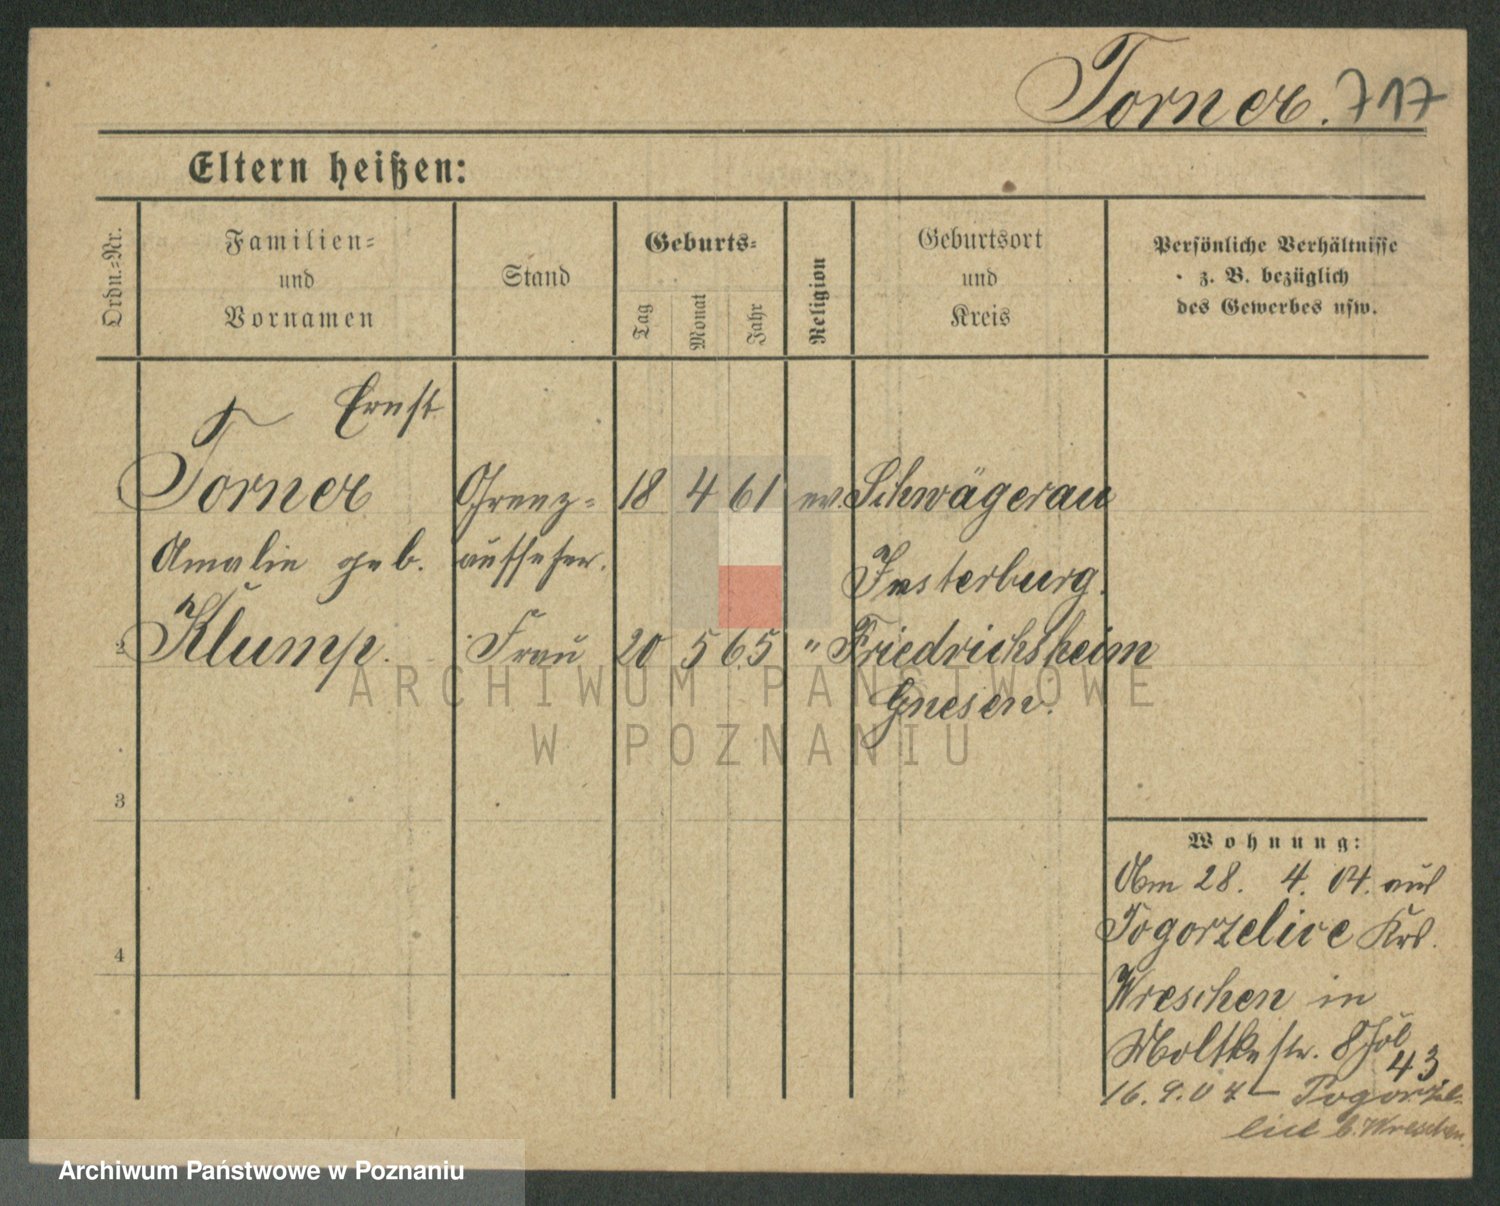 Torner. 717
Eltern heißen:
Ordn.=Nr.
Familien=
und
Vornamen
Stand
Geburts=
Tag
Monat
Jahr
Religion
Geburtsort
und
Kreis
Persönliche Verhältnisse
z. B. bezüglich
des Gewerbes usw.
Ernst
Torner Grenz= 18 4 61 ev. Schwägerau
Amalie geb. aufseher. Insterburg.
2 Klump. Frau 20 5 65 " Friedrichsheim
Gnesen.
3
4
Wohnung:
Am 28. 4. 04. aus
Pogorzelice Krs.
Wreschen in
Moltkestr. 8 Job
43
16. 9. 07 – Pogorze-
lice b. Wreschen.
ARCHIWUM PAŃSTWOWE
W POZNANIU
Archiwum Państwowe w Poznaniu